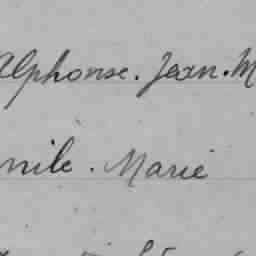 Alphonse. Jean. M
mile. Marie